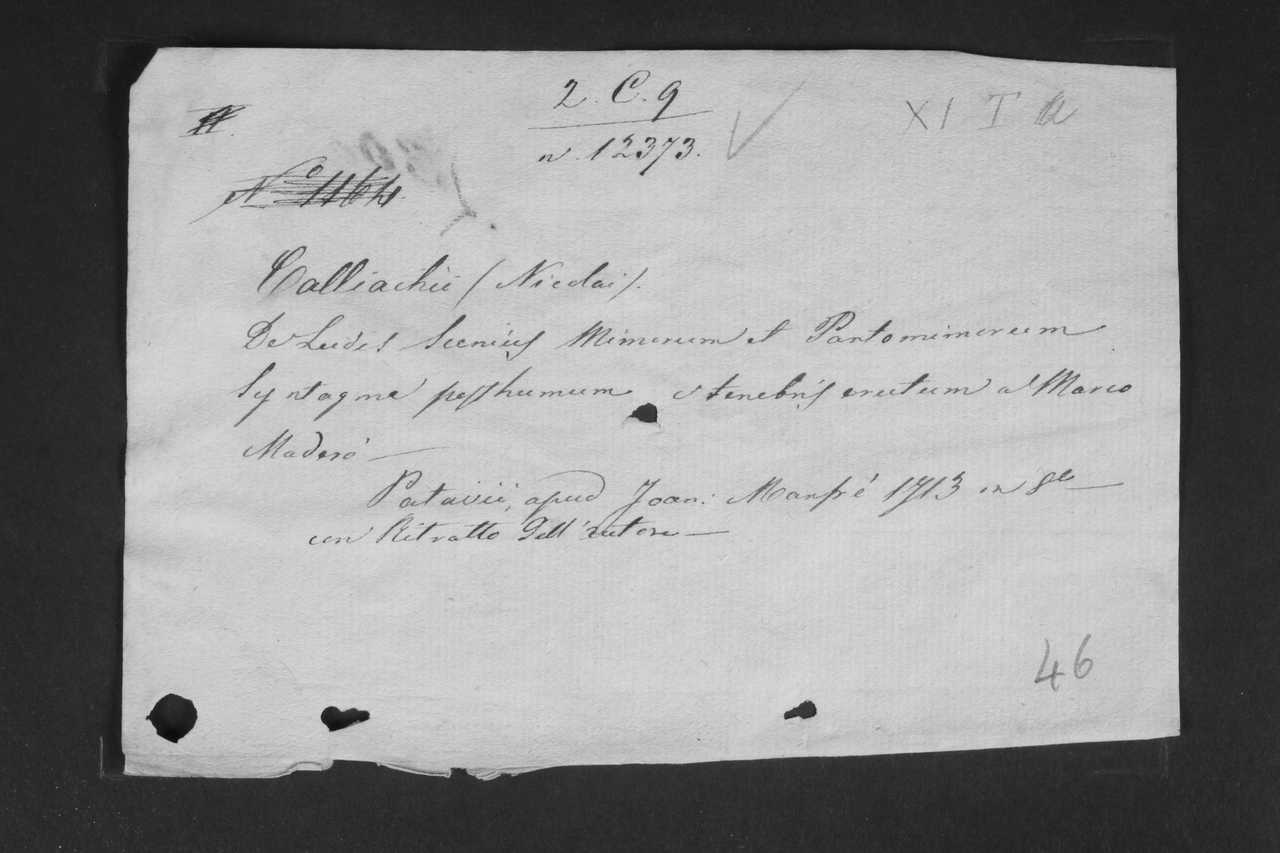 2. C. 9
n. 12373.
XI I
N.º 1164
Calliachii (Nicolai).
De Ludis Scenicis Mimorum et Pantomimorum
Syntagma posthumum e tenebris erutum a Marco
Madero —
Patavii, apud Joan: Manfré 1713 in 8º —
con Ritratto dell'autore —
46